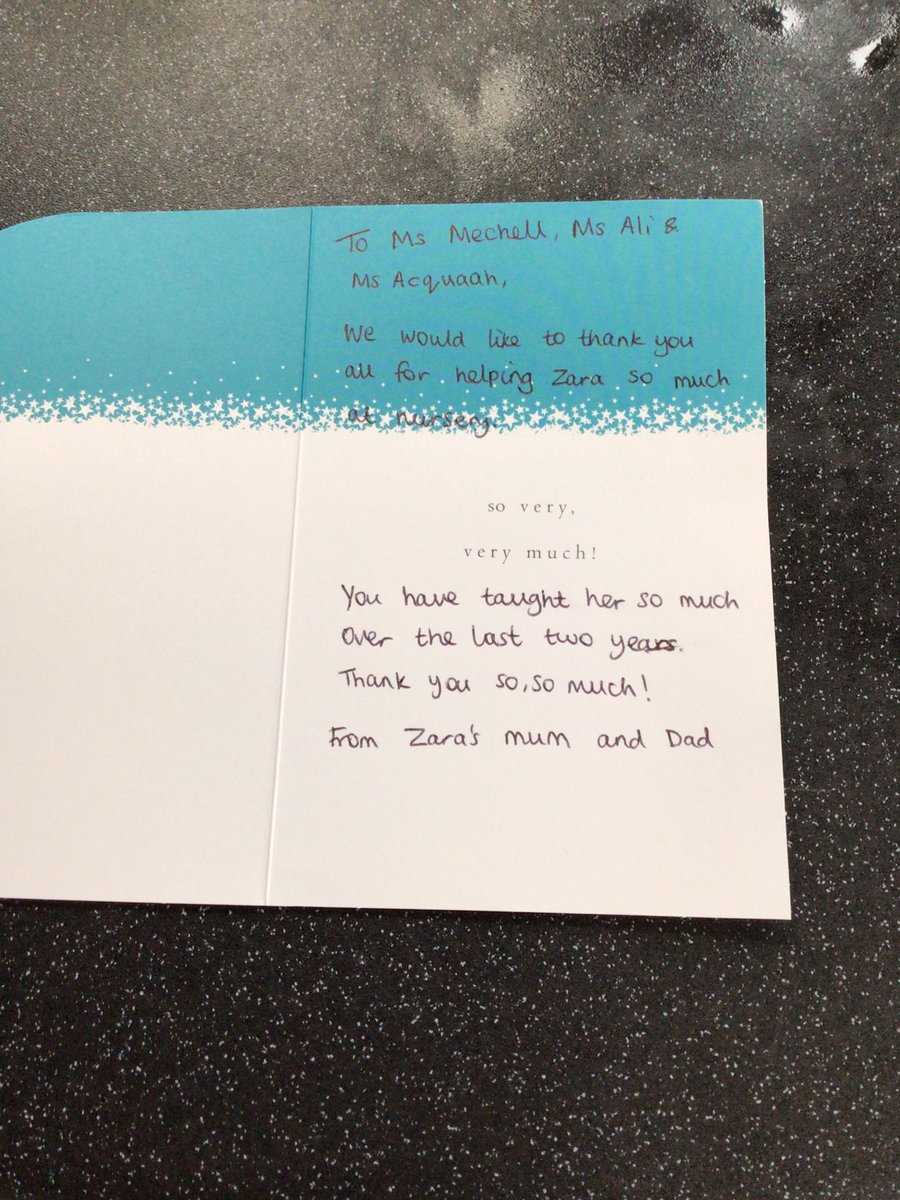 To Ms Mechell, Ms Ali &
Ms Acquaah,
We would like to thank you
all for helping Zara so much
at nursery.
so very,
very much!
You have taught her so much
over the last two years.
Thank you so, so much!
From Zara's mum and Dad